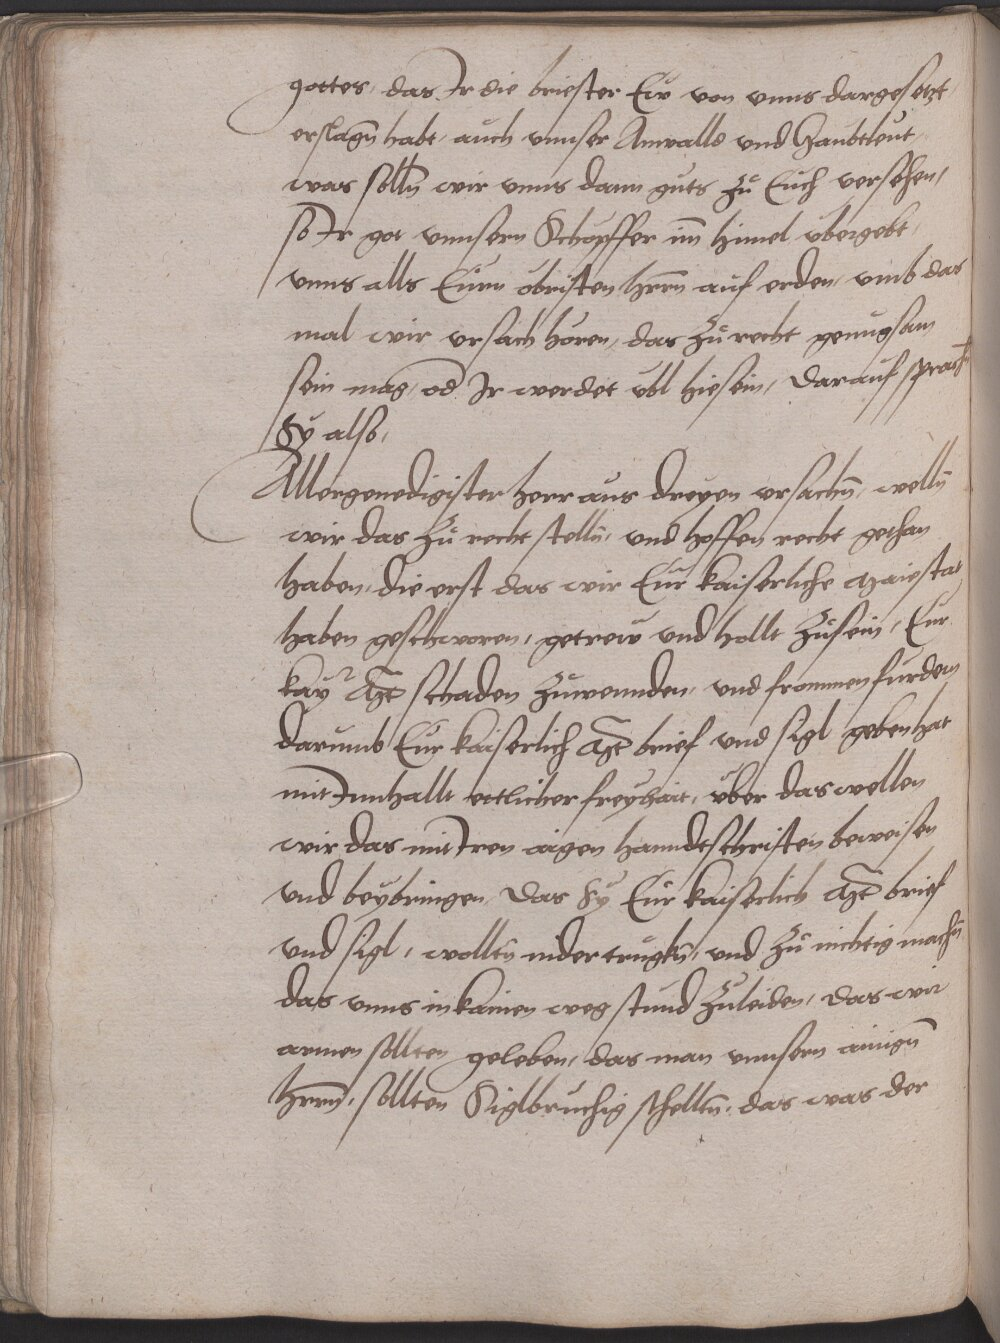 gottes, das Ir die briester Eur von unns dargesetzt,
erslagn habt, auch unnser Anwalld und Haubtleut,
was solln wir unns dann guts zu Euch versehen,
so Ir got unnsern Schopffer im himel ubergebt,
unns alls Eurn obristen herrn auf erden, umb das
mal wir ursach horen, das zu recht genugsam
sein mag, od Ir werdet ubl hie sein, Darauf sprach
Sy also,
Allergenedigister herr aus dreyen ursachn, welln
wir das zu recht stelln, und hoffen recht gethan
haben, die erst das wir Eur kaiserliche Maiestat
haben geschworen, getrew und hollt zu sein, Eur
kayr Mt schaden zuwennden, und frommen furdern
darumb Eur kaiserlich Mt brief und sigl geben hat
mit Innhallt ettlicher freyhait, uber das wellen
wir das mit Iren aigen hanndtschrifften beweisen
und beybringen, Das Sy Eur kaiserlich Mt brief
und sigl, wolltn nidertrugkn, und zu nichtig machn
das unns in kainen weg stund zuleiden, das wir
armen sollten geleben, das man unnsern ainign
herrn, sollten Siglbruchig schelltn, das was der